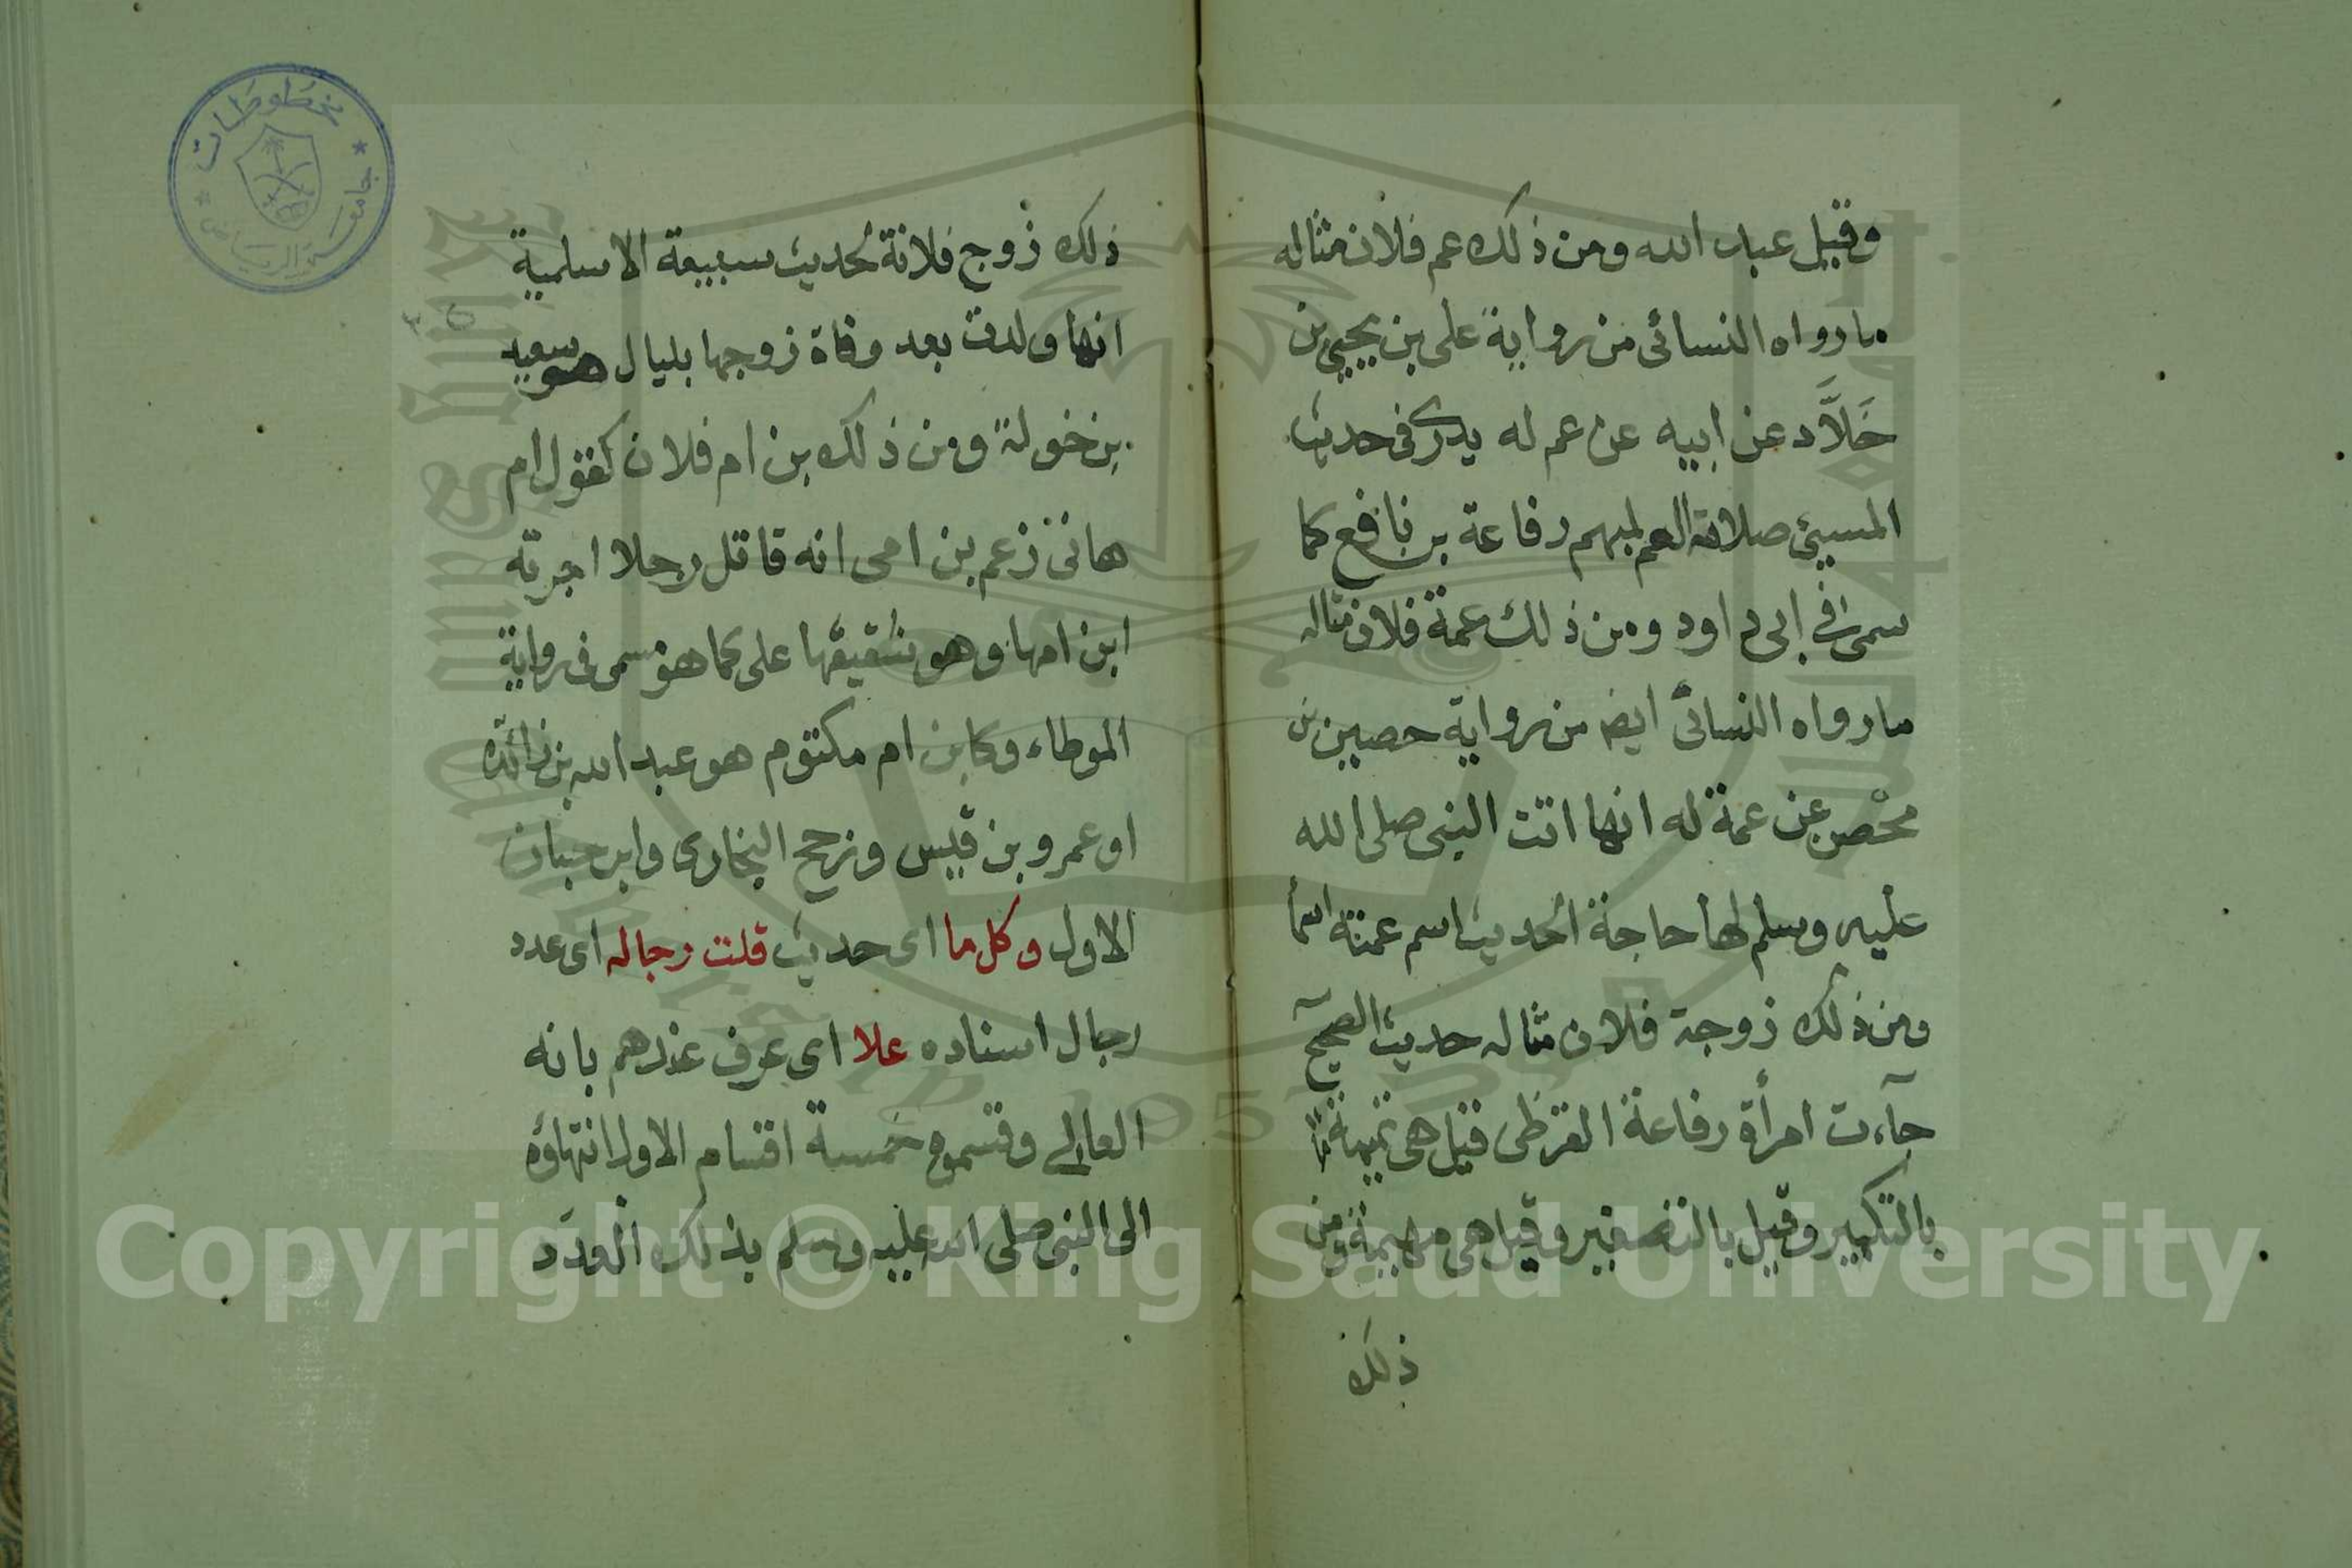 وقيل عباد الله ومن ذلك عم فلان مثاله
ما رواه النسائى من رواية على بن يحيى بن
خَلاَّد عن ابيه عن عم له بدرى فى حديث
المسيئ صلاته العم لمبهم رفاعة بن نافع كما
سمى فى ابى داود ومن ذلك عمة فلان مثاله
ما رواه النسائى ايضا من رواية حصين بن
محصن عن عمة له انها اتت النبى صلى الله
عليه وسلم لها حاجة الحديث اسم عمته اسما
ومن ذلك زوجة فلان مثاله حديث الصحيح
جآءت امرأة رفاعة القرظى قيل هى تميمة
بالتكبير وقيل بالتصغير وقيل هى سهيمة ومن
ذلك
ذلك زوج فلانة كحديث سبيعة الاسلمية
انها ولدت بعد وفاة زوجها بليال هو سعيد
بن خولة ومن ذلك بن ام فلان كقول ام
هانئ زعم بن امى انه قاتل رجلا اجرته
ابن امها وهو شقيقها على كما هو مسمى فى رواية
الموطاء وكابن ام مكتوم هو عبد الله بن زائدة
او عمرو بن قيس ورجح البخارى وابن حبان
الاول وكل ما اى حديث قلت رجاله اى عدد
رجال اسناده علا اى عرف عندهم بانه
العالى وقسموه خمسة اقسام الاول انتهاؤه
الى النبى صلى الله عليه وسلم بذلك العدد
مخطوطات
جامعة الرياض
Copyright © King Saud University